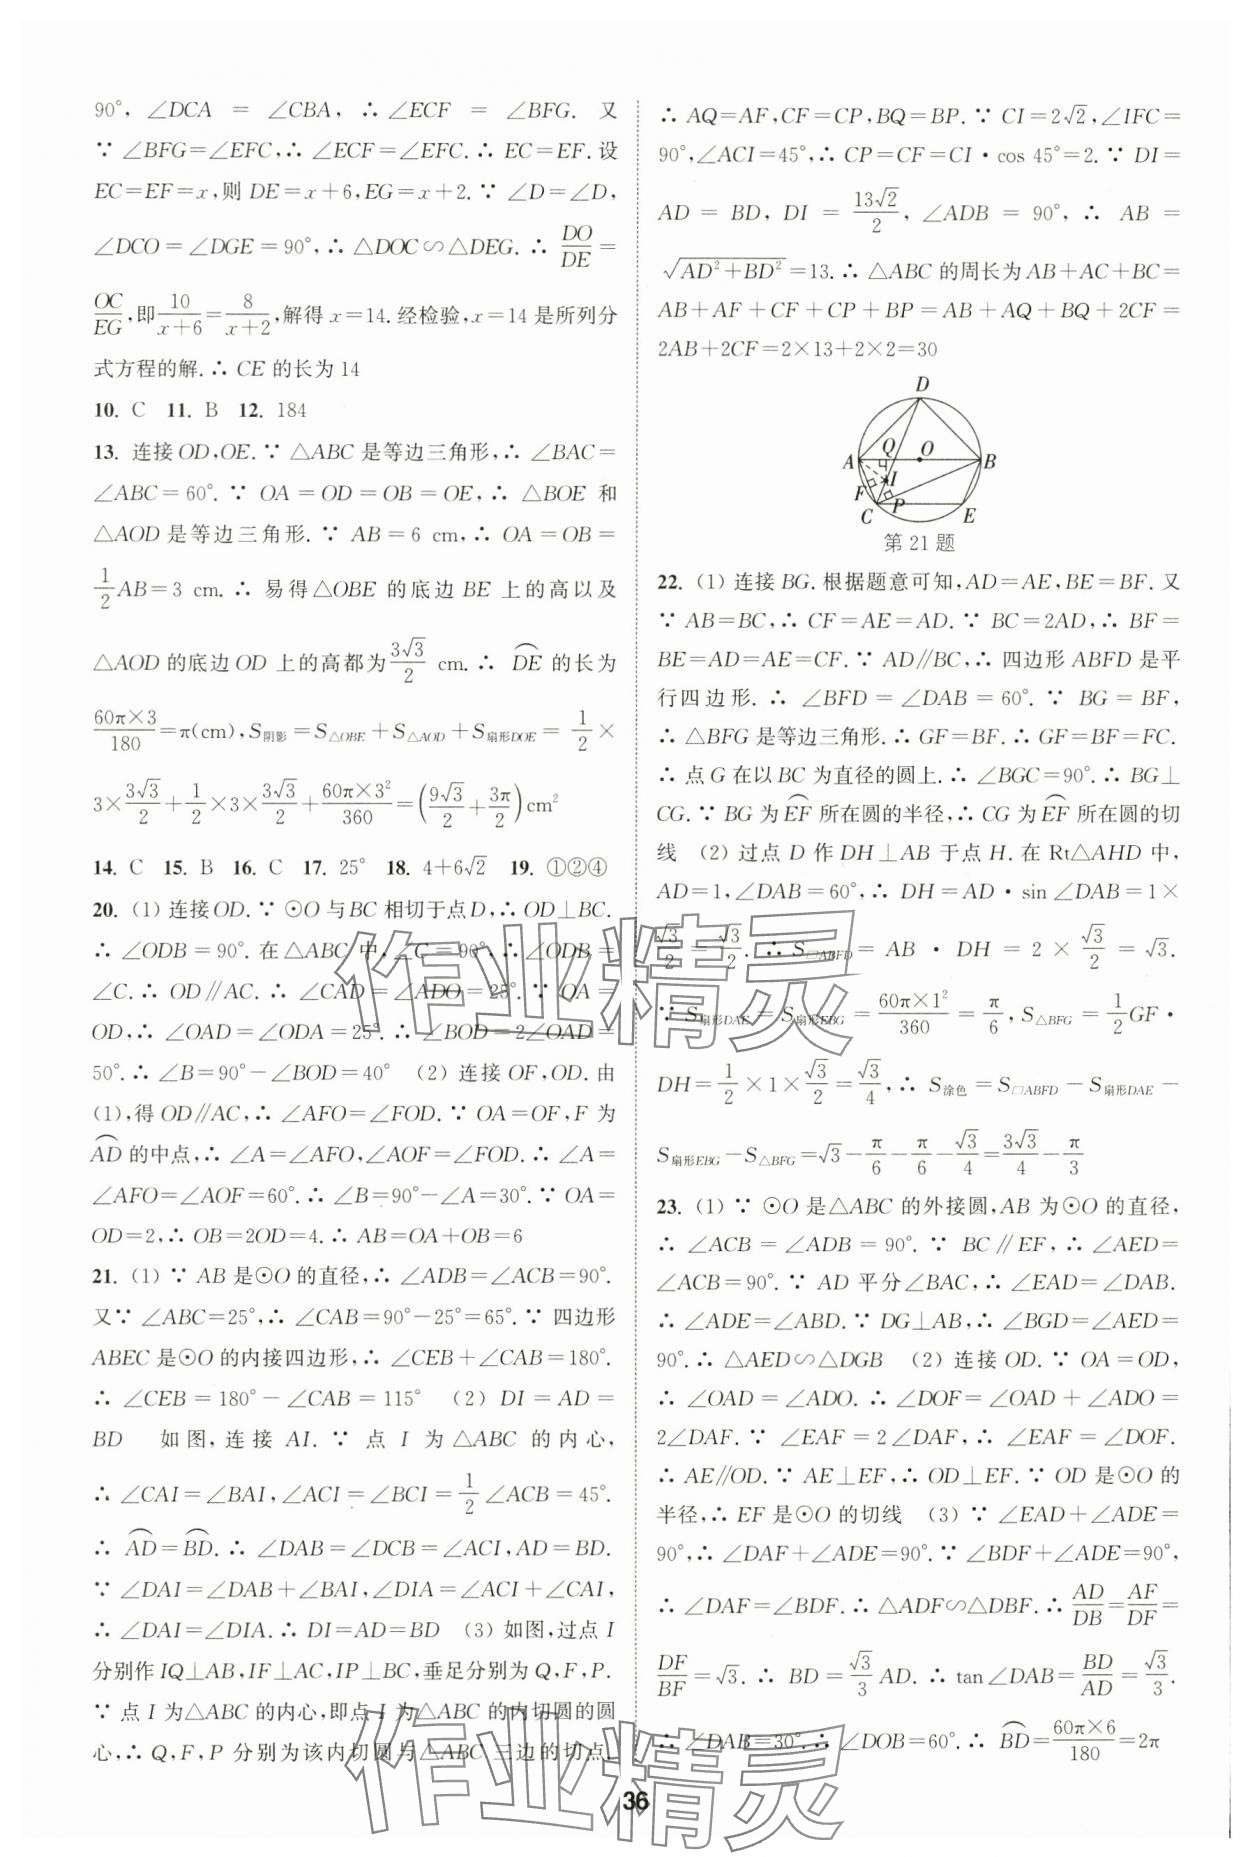 90°, ∠DCA = ∠CBA, ∴ ∠ECF = ∠BFG. 又
∵ ∠BFG=∠EFC,∴ ∠ECF=∠EFC.∴ EC=EF.设
EC=EF=x,则 DE=x+6,EG=x+2.∵ ∠D=∠D,
∠DCO=∠DGE=90°,∴ △DOC∽△DEG.∴ DO/DE=
OC/EG,即10/(x+6)=8/(x+2),解得 x=14.经检验,x=14 是所列分
式方程的解.∴ CE 的长为 14
10. C 11. B 12. 184
13. 连接 OD,OE.∵ △ABC 是等边三角形,∴ ∠BAC=
∠ABC=60°.∵ OA=OD=OB=OE,∴ △BOE 和
△AOD 是等边三角形.∵ AB=6 cm,∴ OA=OB=
1/2AB=3 cm.∴ 易得△OBE 的底边 BE 上的高以及
△AOD 的底边 OD 上的高都为3√3/2 cm.∴ ⌒DE 的长为
60π×3/180=π(cm),S阴影=S△OBE+S△AOD+S扇形DOE=1/2×
3×3√3/2+1/2×3×3√3/2+60π×3²/360=(9√3/2+3π/2)cm²
14. C 15. B 16. C 17. 25° 18. 4+6√2 19. ①②④
20. (1) 连接OD.∵ ⊙O 与BC 相切于点D,∴ OD⊥BC.
∴ ∠ODB=90°.在△ABC 中,∠C=90°,∴ ∠ODB=
∠C.∴ OD∥AC.∴ ∠CAD=∠ADO=25°.∵ OA=
OD,∴ ∠OAD=∠ODA=25°.∴ ∠BOD=2∠OAD=
50°.∴ ∠B=90°-∠BOD=40° (2) 连接 OF,OD.由
(1),得 OD∥AC,∴ ∠AFO=∠FOD.∵ OA=OF,F 为
⌒AD的中点,∴ ∠A=∠AFO,∠AOF=∠FOD.∴ ∠A=
∠AFO=∠AOF=60°.∴ ∠B=90°-∠A=30°.∵ OA=
OD=2,∴ OB=2OD=4.∴ AB=OA+OB=6
21. (1) ∵ AB 是⊙O 的直径,∴ ∠ADB=∠ACB=90°.
又∵ ∠ABC=25°,∴ ∠CAB=90°-25°=65°.∵ 四边形
ABEC 是⊙O 的内接四边形,∴ ∠CEB+∠CAB=180°.
∴ ∠CEB=180°-∠CAB=115° (2) DI=AD=
BD 如图,连接 AI.∵ 点 I 为△ABC 的内心,
∴ ∠CAI=∠BAI,∠ACI=∠BCI=1/2∠ACB=45°.
∴ ⌒AD=⌒BD.∴ ∠DAB=∠DCB=∠ACI,AD=BD.
∵ ∠DAI=∠DAB+∠BAI,∠DIA=∠ACI+∠CAI,
∴ ∠DAI=∠DIA.∴ DI=AD=BD (3) 如图,过点 I
分别作 IQ⊥AB,IF⊥AC,IP⊥BC,垂足分别为 Q,F,P.
∵ 点 I 为△ABC 的内心,即点 I 为△ABC 的内切圆的圆
心,∴ Q,F,P 分别为该内切圆与△ABC 三边的切点.
∴ AQ=AF,CF=CP,BQ=BP.∵ CI=2√2,∠IFC=
90°,∠ACI=45°,∴ CP=CF=CI·cos 45°=2.∵ DI=
AD=BD,DI=13√2/2,∠ADB=90°,∴ AB=
√(AD²+BD²)=13.∴ △ABC 的周长为 AB+AC+BC=
AB+AF+CF+CP+BP=AB+AQ+BQ+2CF=
2AB+2CF=2×13+2×2=30
D
Q
O
A
B
I
F
P
C
E
第 21 题
22. (1) 连接 BG.根据题意可知,AD=AE,BE=BF.又
∵ AB=BC,∴ CF=AE=AD.∵ BC=2AD,∴ BF=
BE=AD=AE=CF.∵ AD∥BC,∴ 四边形 ABFD 是平
行四边形.∴ ∠BFD=∠DAB=60°.∵ BG=BF,
∴ △BFG 是等边三角形.∴ GF=BF.∴ GF=BF=FC.
∴ 点 G 在以 BC 为直径的圆上.∴ ∠BGC=90°.∴ BG⊥
CG.∵ BG 为⌒EF 所在圆的半径,∴ CG 为⌒EF 所在圆的切
线 (2) 过点 D 作 DH⊥AB 于点 H.在 Rt△AHD 中,
AD=1,∠DAB=60°,∴ DH=AD·sin∠DAB=1×
√3/2=√3/2.∴ S▱ABFD=AB·DH=2×√3/2=√3.
∵ S扇形DAE=S扇形EBG=60π×1²/360=π/6,S△BFG=1/2GF·
DH=1/2×1×√3/2=√3/4,∴ S涂色=S▱ABFD-S扇形DAE-
S扇形EBG-S△BFG=√3-π/6-π/6-√3/4=3√3/4-π/3
23. (1) ∵ ⊙O 是△ABC 的外接圆,AB 为⊙O 的直径,
∴ ∠ACB=∠ADB=90°.∵ BC∥EF,∴ ∠AED=
∠ACB=90°.∵ AD 平分∠BAC,∴ ∠EAD=∠DAB.
∴ ∠ADE=∠ABD.∵ DG⊥AB,∴ ∠BGD=∠AED=
90°.∴ △AED∽△DGB (2) 连接 OD.∵ OA=OD,
∴ ∠OAD=∠ADO.∴ ∠DOF=∠OAD+∠ADO=
2∠DAF.∵ ∠EAF=2∠DAF,∴ ∠EAF=∠DOF.
∴ AE∥OD.∵ AE⊥EF,∴ OD⊥EF.∵ OD 是⊙O 的
半径,∴ EF 是⊙O 的切线 (3) ∵ ∠EAD+∠ADE=
90°,∴ ∠DAF+∠ADE=90°.∵ ∠BDF+∠ADE=90°,
∴ ∠DAF=∠BDF.∴ △ADF∽△DBF.∴ AD/DB=AF/DF=
DF/BF=√3.∴ BD=√3/3 AD.∴ tan∠DAB=BD/AD=√3/3.
∴ ∠DAB=30°.∴ ∠DOB=60°.∴ ⌒BD=60π×6/180=2π
作业精灵
作业精灵
36